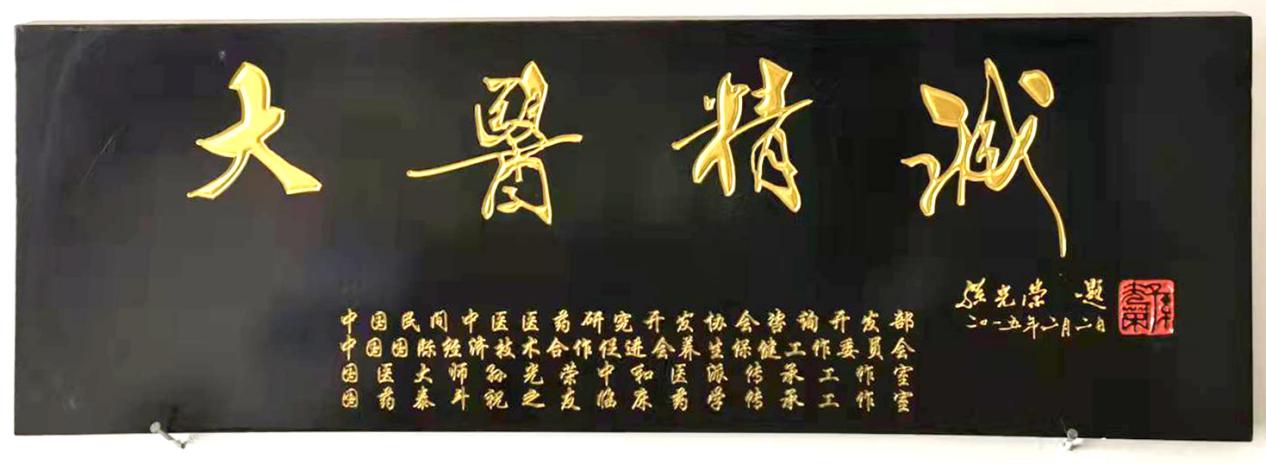 大醫精诚
孙光荣 题
二〇一五年二月二日
孙光荣
中国民间中医医药研究开发协会咨询开发部
中国国际经济技术合作促进会养生保健工作委员会
国医大师孙光荣中和医派传承工作室
国药泰斗祝之友临床药学传承工作室